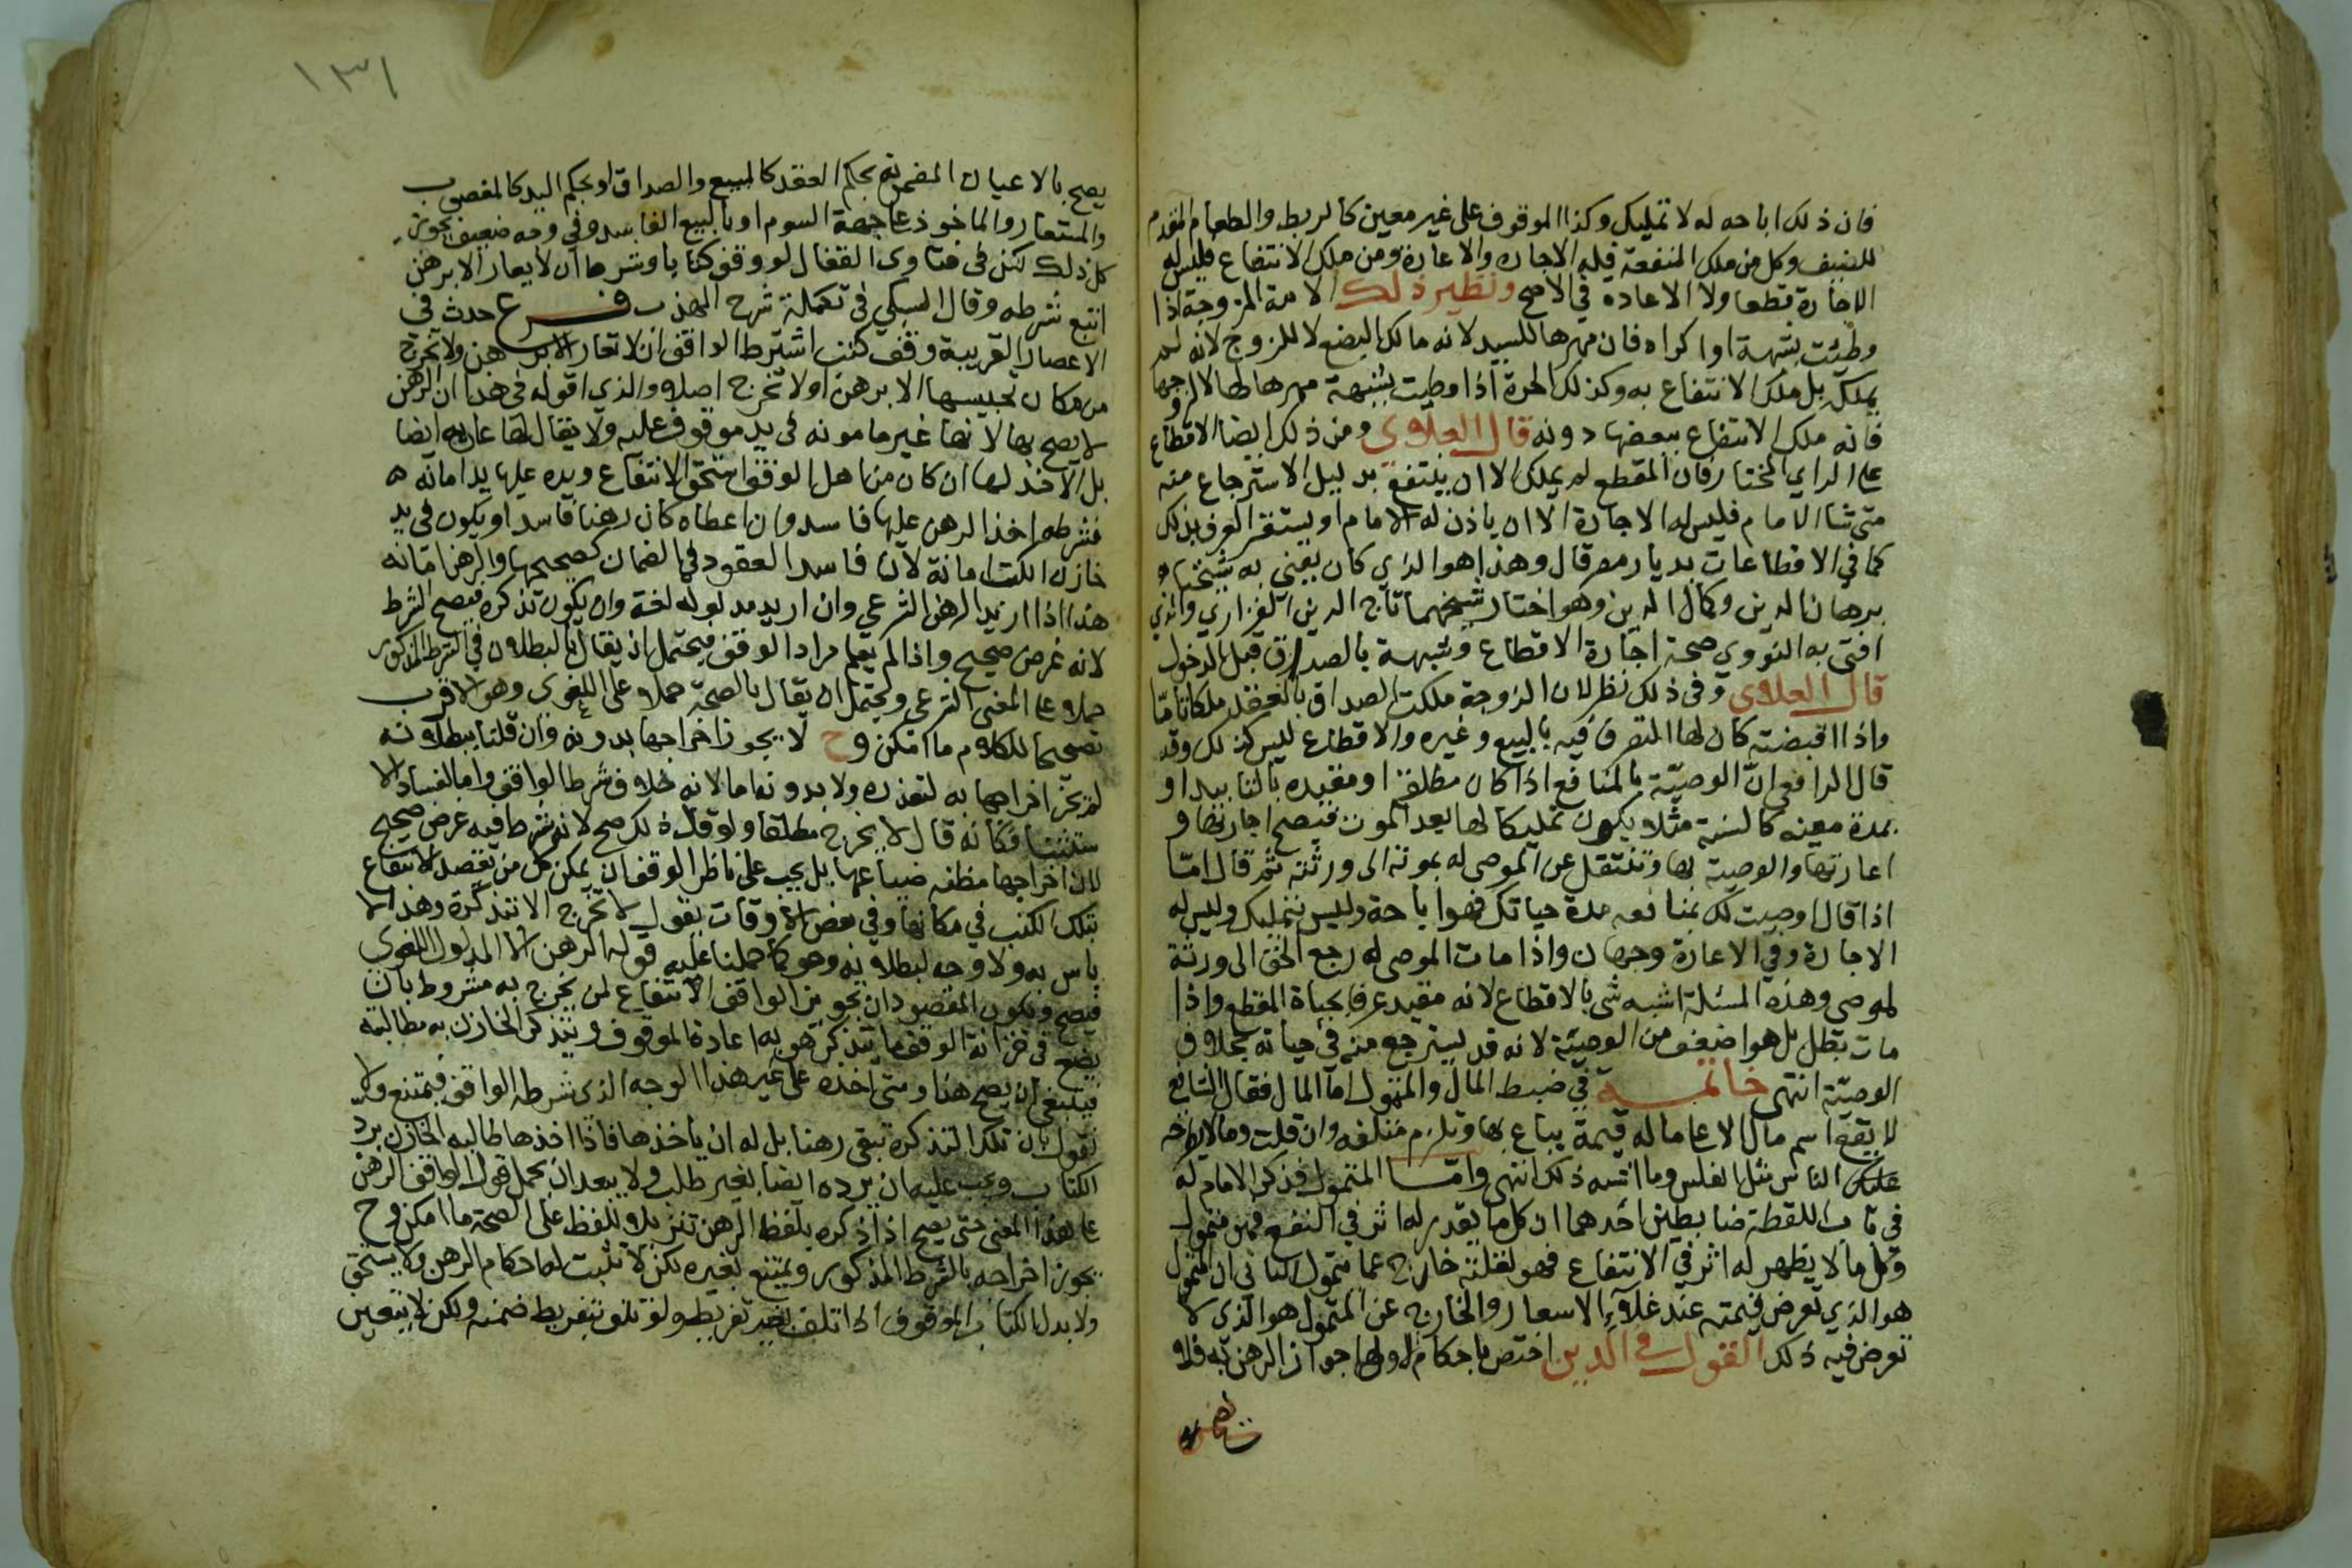 فان ذلك اباحه له لا تمليك وكذا الموقوف على غير معين كالربط والطعام المقدم
للضيف وكل من ملك المنفعة فله الاجاره والاعارة ومن ملك الانتفاع فليس له
الاجارة قطعا ولا الاعاده في الاصح ونظير ذلك الامة المزوجة اذا
وطئت بشبهة او اكراه فان مهرها للسيد لانه مالك البضع لا للزوج لانه لم
يملكه بل ملك الانتفاع به وكذلك الحرة اذا وطيت بشبهة مهرها لها لا لزوجها
فانه ملك الانتفاع ببعضها دونه قال العلاوى ومن ذلك ايضا الاقطاع
على الراي المختار فان المقطع لم يملك الا ان ينتفع بدليل الاسترجاع منه
متى شا الامام فليس له الاجارة الا ان ياذن له الامام او يستقر العرف بذلك
كما في الاقطاعات بديار مصر قال وهذا هو الذي كان يفتي به شيخنا
برهان الدين وكمال الدين وهو اختار شيخهما تاج الدين الفزاري والذي
افتى به النووي صحة اجارة الاقطاع وشبهة بالصداق قبل الدخول
قال العلاوى وفى ذلك نظر لان الزوجة ملكت الصداق بالعقد ملكا تاما
واذا اقبضته كان لها التصرف فيه بالبيع وغيره والاقطاع ليس كذلك وقد
قال الرافعى ان الوصية بالمنافع اذا كان مطلقا او مقيده بالتابيد او
بمدة معينه كالسنة مثلا يكون تمليكا لها بعد الموت فيصح اجارتها و
اعارتها والوصية بها وتنتقل عن الموصى له بموته الى ورثته ثم قال امّا
اذا قال اوصيت لك بمنافعه مدة حياتك فهو اباحة وليس بتمليك وليس له
الاجارة وفي الاعارة وجهان واذا مات الموصى له رجع الحق الى ورثة
الموصى وهذه المسئلة اشبه شى بالاقطاع لانه مقيد عرفا بحياة المقطع واذا
مات بطل بل هو اضعف من الوصية لانه قد يسترجع منه في حياته بخلاف
الوصية انتهى خاتمة في ضبط المال والمتمول اما المال فقال الشافعى
لا يقع اسم مال الا على ما له قيمة يباع بها وتلزم متلفه وان قلت وما لا يطرحه
الناس مثل الفلس وما اشبه ذلك انتهى وامّا المتمول فذكر الامام له
فى باب اللقطة ضابطين احدهما ان كل ما يقدر له اثر في النفع فهو متمول
وكل ما لا يظهر له اثر في الانتفاع فهو لقلته خارج عما يتمول الثاني ان المتمول
هو الذي تعرض قيمته عند غلاء الاسعار والخارج عن المتمول هو الذي لا
تعرض فيه ذلك القول في الدين اختص باحكام الاولها جواز الرهن به فلا
١٣١
يصح بالاعيان المضمونة بحكم العقد كالمبيع والصداق او بحكم اليد كالمغصوب
والمستعار والماخوذ على جهة السوم او بالبيع الفاسد وفى وجه ضعيف يجوز
كل ذلك لكن فى فتاوى القفال لو وقف كتابا وشرط ان لا يعار الا برهن
اتبع شرطه وقال السبكي فى تكملة شرح المهذب فرع حدث فى
الاعصار القريبة وقف كتب اشترط الواقف ان لا تعار الا برهن ولا تخرج
من مكان تحبيسها الا برهن او لا تخرج اصلا والذى اقوله فى هذا ان الرهن
لا يصح بها لانها غير مامونه فى يد موقوف عليه ولا يقال لها عارية ايضا
بل الاخذ لها ان كان من اهل الوقف استحق الانتفاع ويده عليها يد امانه
فشرط اخذ الرهن عليها فاسد وان اعطاه كان رهنا فاسدا ويكون فى يد
خازن الكتب امانة لان فاسد العقود فى الضمان كصحيحها والرهن امانه
هذا اذا اريد الرهن الشرعي وان اريد مدلوله لغة وان يكون تذكره فيصح الشرط
لانه غرض صحيح واذا لم يعلم مراد الواقف فيحتمل ان يقال بالبطلان في الشرط المذكور
حملا على المعنى الشرعى ويحتمل ان يقال بالصحة حملا على اللغوى وهو الاقرب
تصحيحا للكلام ما امكن وح لا يجوز اخراجها بدونه وان قلنا ببطلانه
لم يجز اخراجها به لتعذره ولا بدونه اما لانه خلاف شرط الواقف واما لفساد الا
ستثنا فكانه قال لا يخرج مطلقا ولو قال ذلك صح لانه شرط فيه غرض صحيح
لان اخراجها مظنه ضياعها بل يجب على ناظر الوقف ان يمكن كل من يقصد الانتفاع
بتلك الكتب في مكانها وفي بعض الاوقات يقول لا تخرج الا بتذكرة وهذا لا
باس به ولا وجه لبطلانه وهو كما حملنا عليه قوله الا برهن المدلول اللغوي
فيصح ويكون المقصود ان تجويز الواقف الانتفاع لمن يخرج به مشروط بان
يضع فى خزانة الوقف ما يتذكر هو به اعادة الموقوف ويتذكر الخازن به مطالبته
فينبغى ان يصح هذا ومتى اخذه على غير هذا الوجه الذى شرطه الواقف فيمتنع ولا
نقول بان تلك التذكره تبقى رهنا بل له ان ياخذها فاذا اخذها طالبه الخازن برد
الكتاب ويجب عليه ان يرده ايضا بغير طلب ولا يبعد ان يحمل قول الواقف الرهن
على هذا المعنى حتى يصح اذا ذكره بلفظ الرهن تنزيلا للفظ على الصحة ما امكن وح
يجوز اخراجه بالشرط المذكور ويمتنع بغيره لكن لا تثبت له احكام الرهن ولا يستحق
ولا بدل الكتاب الموقوف اذا تلف بغير تفريط ولو تلف بتفريط ضمنه ولكن لا يتعين